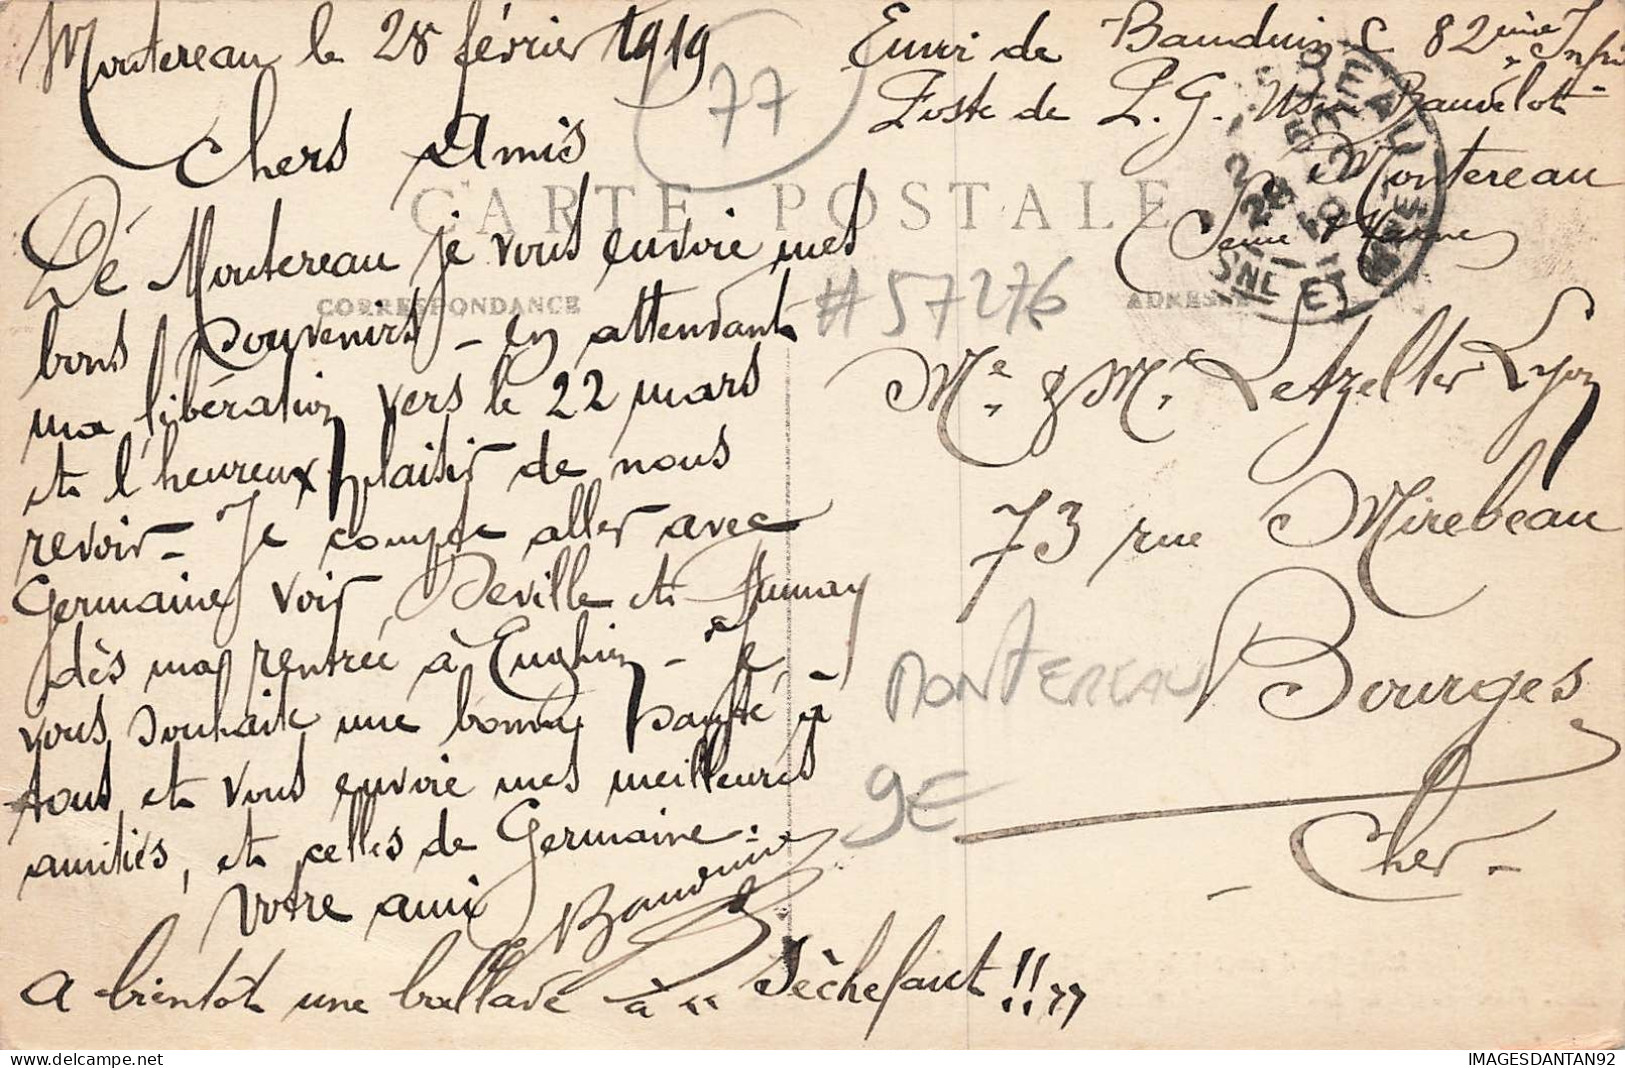 Montereau le 28 février 1919
77
Chers Amis
CARTE POSTALE
Dé Montereau je vous envoie mes
CORRESPONDANCE
bons souvenirs - en attendant
ma libération vers le 22 mars
et l'heureux plaisir de nous
revoir - Je compte aller avec
Germaine voir Deville et Aunay
dès ma rentrée à Enghien - Je
vous souhaite une bonne santé à
tous et vous envoie mes meilleures
amitiés, et celles de Germaine.
Votre ami Baudouin
A bientôt une ballade à " Sèchefaut !! "
Envoi de Baudouin C 82ème Inf
Poste de P. G. Usine Bauvelot
Montereau
Seine & Marne
SNE ET
#57276
ADRESSE
Me & Mr Letzelter Lyon
73 rue Mirebeau
MONTEREAU
Bourges
9E
Cher -
IMAGESDANTAN92
delcampe.net